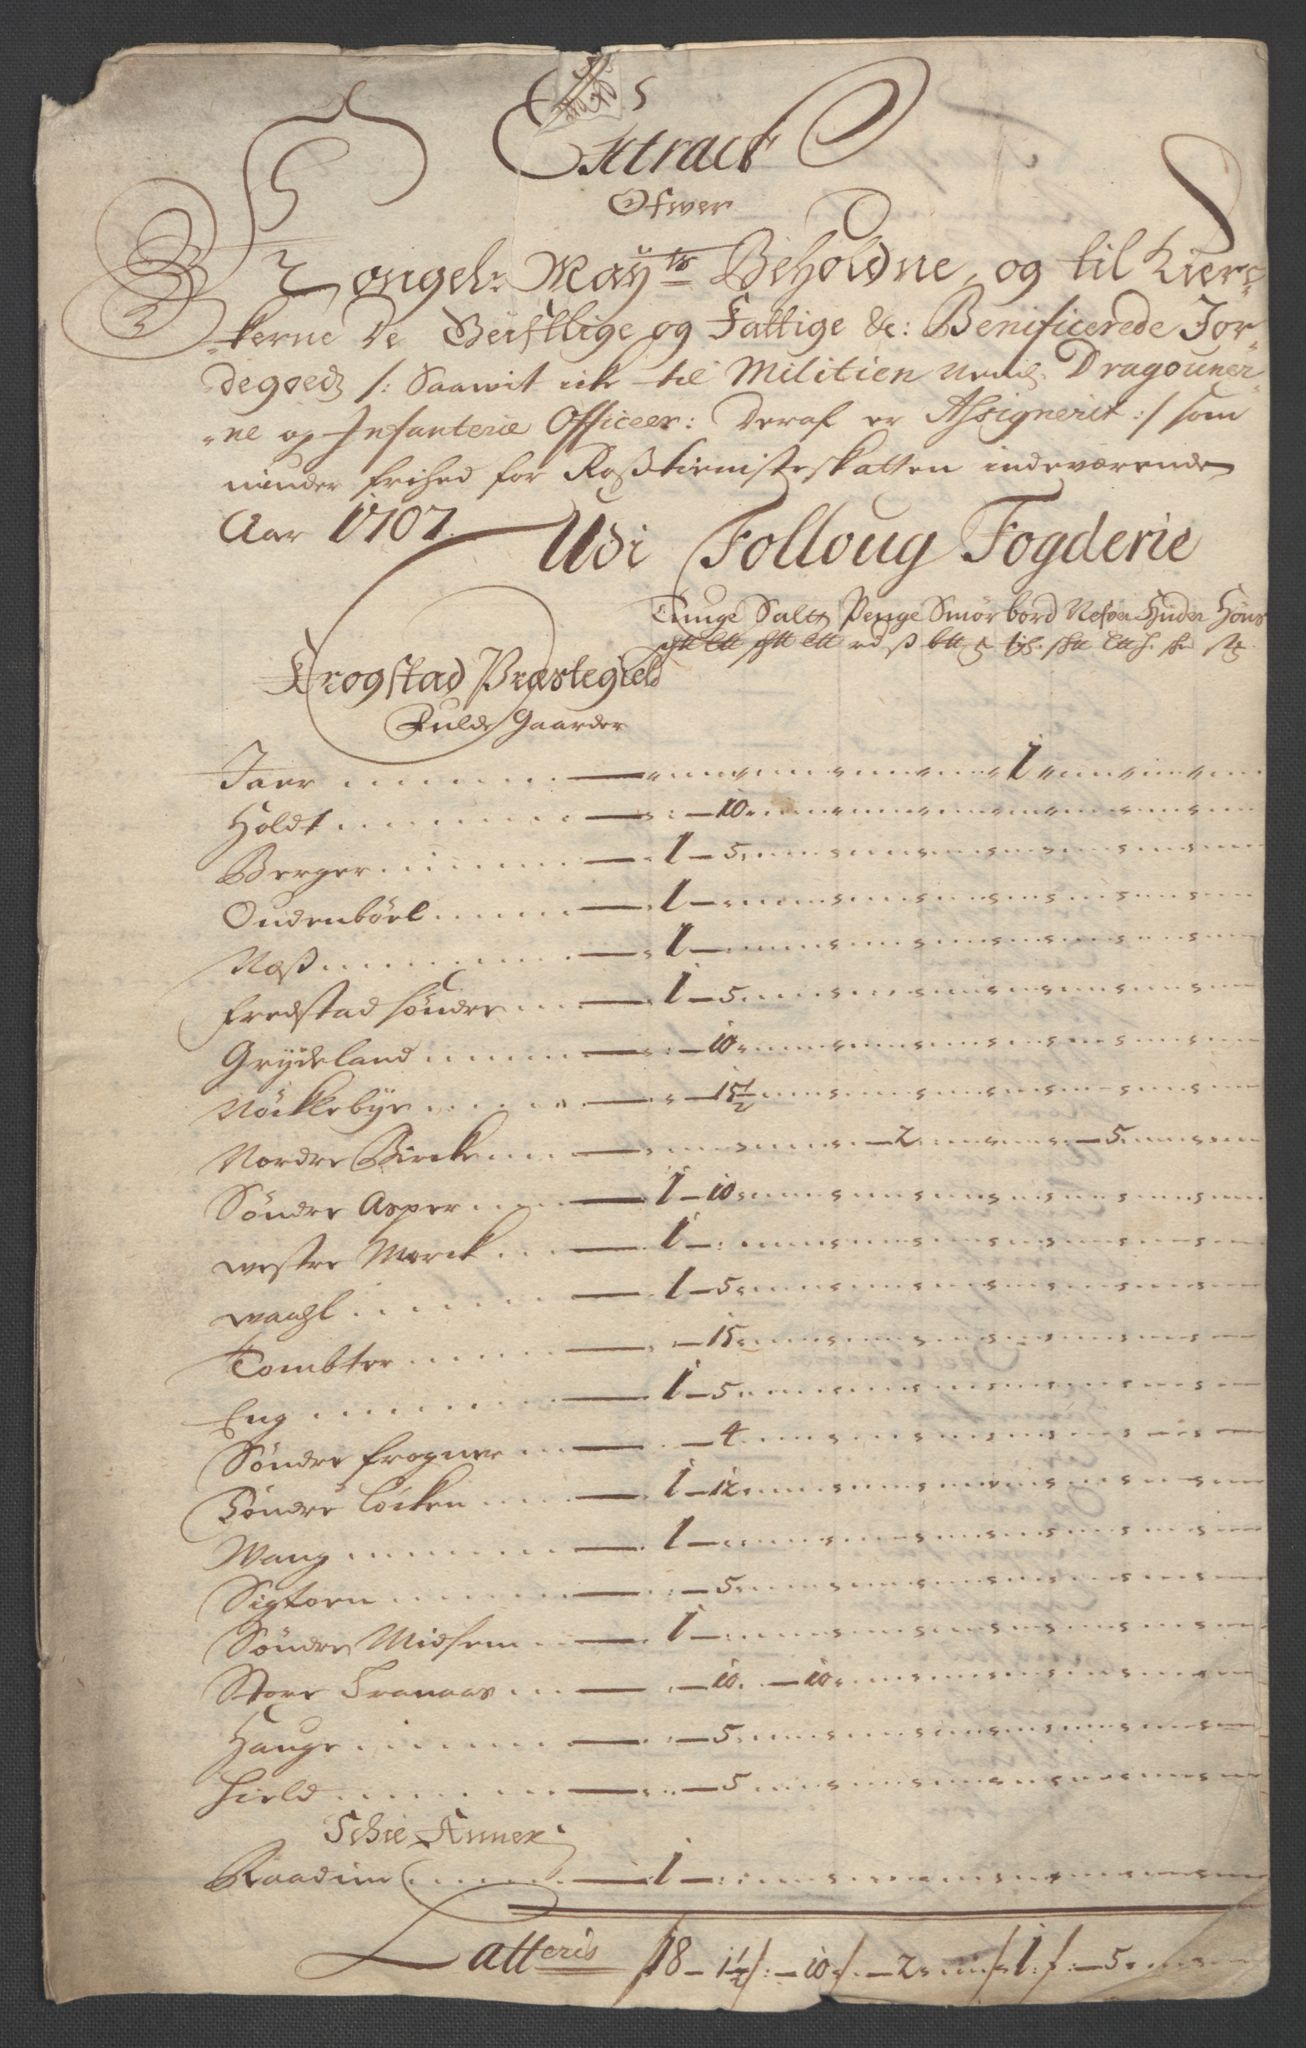 Extract
Ofwer
Kongel: Maytz Beholdne, og til Kier-
kerne De Geistlige og Fattige &c: Benificerede Jor-
degoedz /: Saawit icke til Militien Dragouner-
ne og Infanterie Officeer: Deraf er Assignerit :/ som
nÿnder frihed for Rosstienisteskatten indeværende
Aar 1707.
Udi Folloug Fogderie
Tunge Saltt Penge Smör bord Huder Höns
Krogstad Præstegield
Fulde Gaarder
Jaer 1
Holdt 10
Berger 1 5
Oudenböel 1
Næss 1
Fredstad söndre 1 5
Grydeland 10
Nöcklebye 15½
Nordre Birche 2 5
Söndre Asper 1 10
westre Morck 1
waahl 1 5
Tombter 15
Eng 1 5
Söndre frogner 4
Söndre Löcken 1 12
Wang 1
Sigtorn 5
Söndre Midsem 1
Store Tranaas 10 10
Hauge 5
hield 5
Schie Annex
Raadim 1
Latteris 18 1½ 10 2 1 5